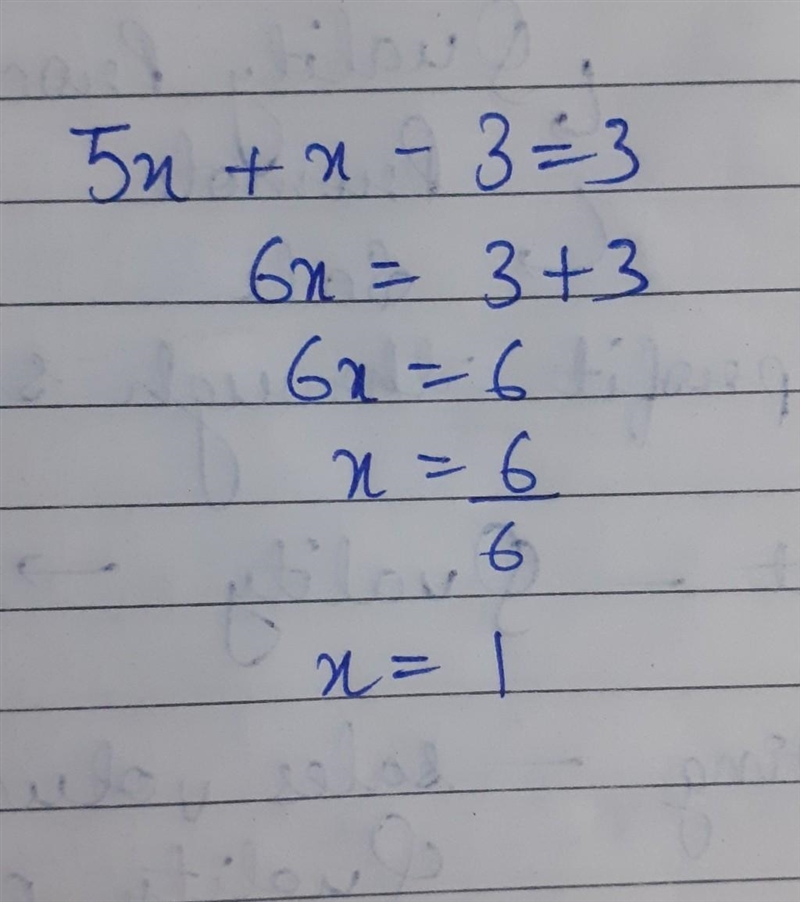 5x + x - 3 = 3
6x = 3 + 3
6x = 6
x = 6
6
x = 1